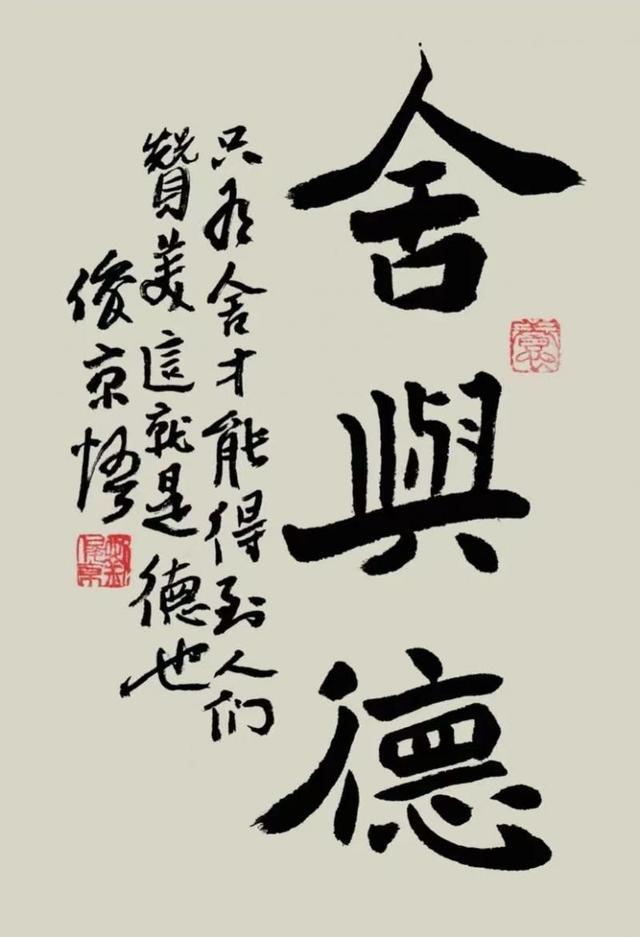 舍與德
只有舍才能得到人们
贊美這就是德也
俊京悟